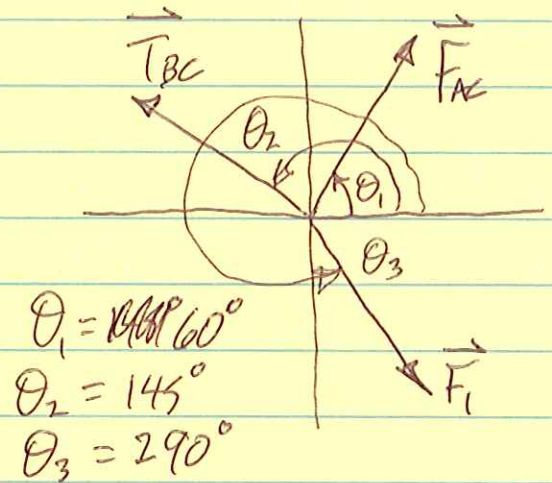 T_BC
F_AC
θ₂
θ₁
θ₃
θ₁ = 60°
θ₂ = 145°
θ₃ = 290°
F₁